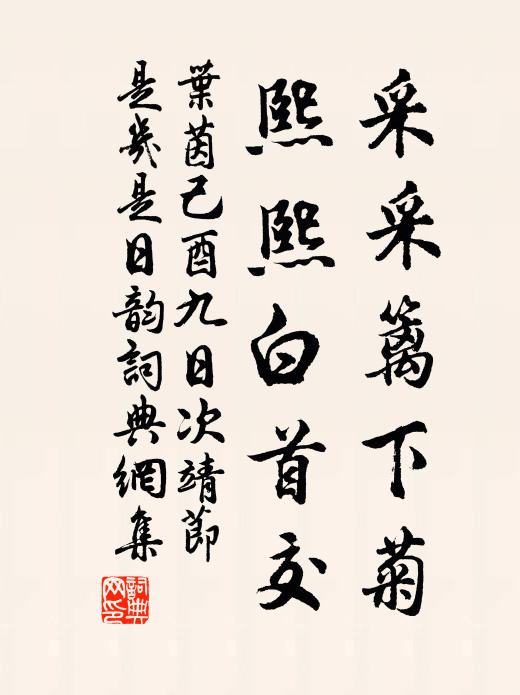 采采篱下菊
熙熙白首交
葉茵己酉九日次靖節
是歲是日韻詞典網集
詞典
网印